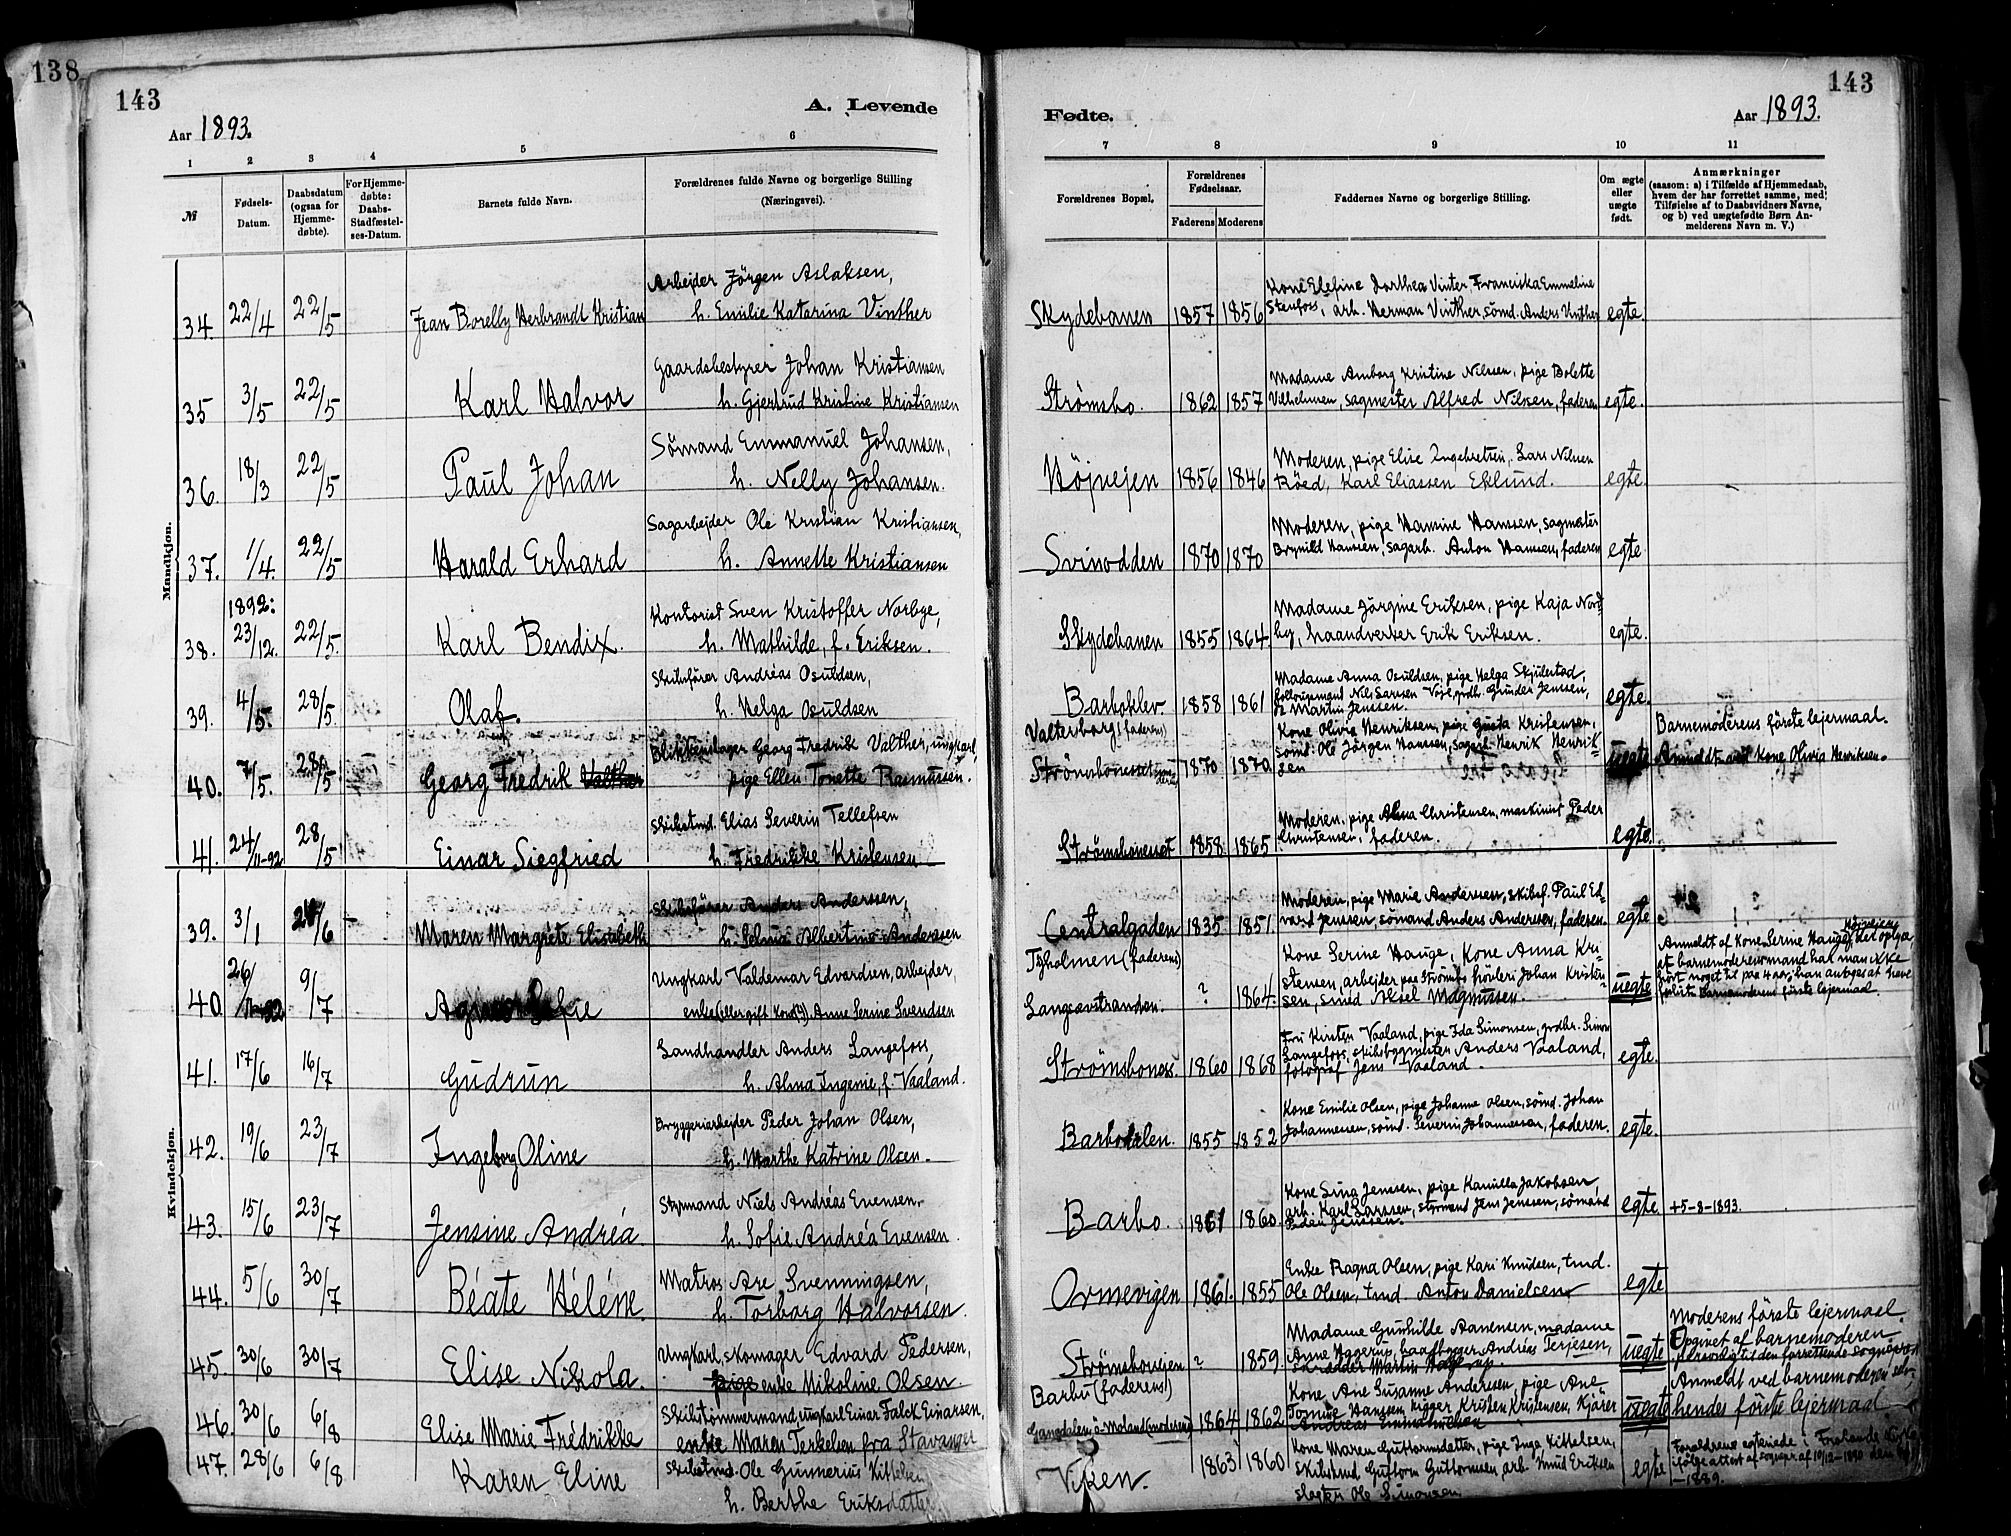 138
143
A. Levende
Aar 1893.
1 2 3 4 5 6
№
Fødsels-
Datum.
Daabsdatum
(ogsaa for
Hjemme-
døbte).
For Hjemme-
døbte:
Daabs-
Stadfæstel-
ses-Datum.
Barnets fulde Navn.
Forældrenes fulde Navne og borgerlige Stilling
(Næringsvei).
Mandkjøn.
Arbejder Jörgen Aslaksen,
34. 22/4 22/5 Jean Borelly Herbrandt Kristian h. Emilie Katarina Vinther
Gaardsbestyrer Johan Kristiansen
35 3/5 22/5 Karl Halvor h. Gjertrud Kristine Kristiansen
Sömand Emmanuel Johansen,
36. 18/3 22/5 Paul Johan h. Nelly Johansen.
Sagarbejder Ole Kristian Kristiansen,
37. 1/4. 22/5 Harald Erhard h. Annette Kristiansen
1892:
Kontorist Sven Kristoffer Norbye,
38. 23/12. 22/5. Karl Bendix. h. Mathilde, f. Eriksen.
Skibsförer Andréas Osuldsen,
39. 4/5. 28/5. Olaf. h. Helga Osuldsen
Blikkenslager Georg Fredrik Valther, ungkarl,
40. 7/5. 28/5. Georg Fredrik Valther pige Ellen Tonette Rasmussen.
Skibstmd. Elias Severin Tellefsen
41. 24/11-92 28/5 Einar Siegfried h. Fredrikke Kristensen
Kvindekjøn.
Skibsförer Anders Anderssen,
39. 3/1 24/6 Maren Margrete Elisabeth h. Selma Albertine Anderssen
Ungkarl Valdemar Edvardsen, arbejder,
40. 26/11-92 9/7 Sofie enke Anne Serine Svendsen
Landhandler Anders Langefoss,
41. 17/6 16/7 Gudrun h. Alma Ingenie, f. Vaaland.
Bryggeriarbejder Peder Johan Olsen,
42. 19/6 23/7 Ingeborg Oline h. Marthe Katrine Olsen.
Styrmand Niels Andréas Evensen,
43. 15/6 23/7 Jensine Andréa h. Sofie Andréa Evensen.
Matros Are Svenningsen,
44. 5/6 30/7 Béate Héléne. h. Torborg Halvorsen.
Ungkarl, skomager Edvard Pedersen,
45. 30/6 30/7 Elise Nikola. pige enke Nikoline Olsen.
Skibstömmermand, ungkarl Einar Falck Einarsen,
46. 30/6 6/8 Elise Marie Frédrikke enke Maren Terkelsen fra Stavanger
47. 28/6 6/8 Karen Eline Skibstmd. Ole Gunnerius Kittelsen
h. Berthe Eriksdatter
143
Fødte.
Aar 1893.
7 8 9 10 11
Forældrenes Bopæl.
Forældrenes
Fødselsaar.
Faderens Moderens
Faddernes Navne og borgerlige Stilling.
Om ægte
eller
uægte
født.
Anmærkninger
(saasom: a) i Tilfælde af Hjemmedaab,
hvem der har forrettet samme, med
Tilføielse af to Daabsvidners Navne,
og b) ved uægtefødte Børn An-
melderens Navn m. V.)
Kone Elefine Dorthea Vinter, Franciska Emmeline
Skydebanen 1857 1856 Stenfoss, arb. Herman Vinther, sömd. Anders Vinther egte.
Madame Amborg Kristine Nilssen, pige Bolette
Strømsbo. 1862 1857 Vilhelmsen, sagmester Alfred Nilssen, faderen egte.
Moderen, pige Elise Ingebretsen, Lars Nilssen
Höjvejen 1856 1846 Röed, Karl Eliassen Eklund. egte
Moderen, pige Hansine Hanssen, sagmester
Svinodden 1870 1870 Brynild Hanssen, sagarb. Anton Hanssen, faderen egte.
Madame Jörgine Eriksen, pige Kaja Nord-
Skydebanen 1855 1864. by, haandverker Erik Eriksen. egte.
Madame Anna Osuldsen, pige Helga Skjulestad,
Barboklev 1858 1861 Nils Larssen Voje, grdb. Gunder Jenssen, egte.
Martin Jenssen.
Valterborg (faderen) Kone Olivia Henriksen, pige Gusta Kristensen, Barnemoderens förste lejermaal.
sömd. Ole Jörgen Hanssen, sagarb. Henrik Henrik-
Strømsbonesset 1870 1870. sen uegte Anmeldt ved Kone Olivia Henriksen.
Moderen, pige Alma Christensen, maskinist Peder
Strømsbonesset 1858 1865 Christensen, faderen. egte.
Moderen, pige Marie Anderssen, skibsf. Paul Ed-
Centralgaden 1835 1851. vard Jenssen, sömand Anders Anderssen, faderen. egte
Tyholmen (faderens) Kone Serine Hauge, Kone Anna Kri-
stensen, arbejder paa Strömsbo Johan Kristen-
Langsævstranden. ? 1864. sen, smed Aksel Magnussen. uegte
Anmeldt af Kone Serine Hauge, Höjvejen, det oplyses
at barnemoderens mand har man ikke
hört noget til paa 4 aar; han antages at have
forlist. Barnemoderens förste lejermaal.
Fru Kirsten Vaaland, pige Ida Simonsen, grdbr. Simon
Strømsboness. 1860 1868 Langefoss, skibsbygmester Anders Vaaland, egte.
fotograf Jens Vaaland.
Kone Emilie Olsen, pige Johanne Olsen, sömd. Johan
Barbodalen. 1855 1852 Johannessen, sömd. Severin Johannessen, faderen. egte.
Kone Lina Jenssen, pige Kamilla Jakobsen,
Barbo. 1861 1860. arb. Karl Larssen, styrmand Jens Jenssen, sömand egte +5-8-1893.
Peder Jenssen.
Enke Ragna Olsen, pige Kari Knudsen, tmd.
Ormevigen 1861. 1855 Ole Olsen, tmd. Anton Danielsen egte
Madame Gunhilde Aanensen, madame
Strømsbovejen ? 1859. Anne Yggerup, baadbygger Andréas Terjesen, uegte
skrædder Martin Yggerup
Moderens förste lejermaal.
Opgivet af barnemoderen
personlig til den forrettende sogneprest
Barbu (faderens) Kone Ane Susanne Anderssen, pige Ane
1864 1862 Tomine Hanssen, rigger Kristen Kristensen, Kjörer uegte
Anmeldt ved barnemoderen selv,
hendes förste lejermaal
Kone Maren Guttormsdatter, pige Inga Kittelsen,
Viken. 1863 1860 skibstmd. Guttorm Guttormsen, arb. Knud Eriksen egte
slagter Ole Simonsen
Forældrene egteviede i Kirke
ifölge attest af sognepr. af 10/12-1890
-1889.